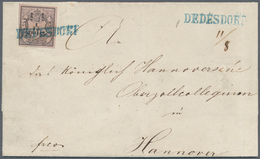 DEDESDORF
DEDESDORF
11/8
An
das Königlich Hannoversche
Oberzollcollegium
in
Hannover